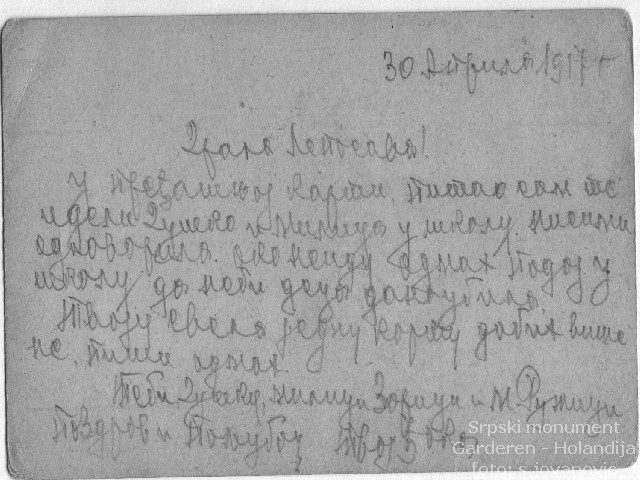 30 Априла 1917 г
Драга Лепосава!
у прећашњој карти питао сам те
идели Душко и Милица у школу. ниси ми
одговорила. ако неиду однах подај у
школу да неби деца дангубила.
Твоју свега једну карту добих више
не. пиши однах.
Теби, Душку, Милици Зорици и М. Ружици
Поздрав и Пољубац Твој
Srpski monument
Garderen - Holandija
foto: s.jovanovic